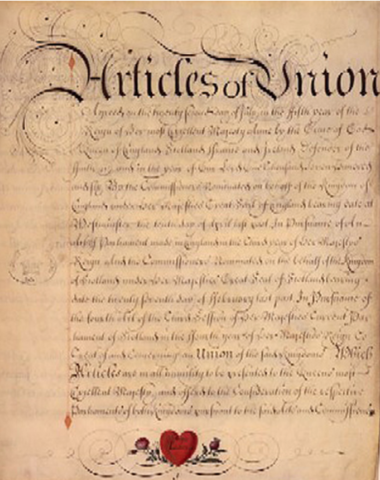 Articles of Union
Agreed on the twenty Second day of July, in the fifth year of the
Reign of Her most Excellent Majesty Anne by the Grace of God
Queen of England Scotland France and Ireland Defender of the
Faith and in the year of our Lord One thousand Seven hundred
and Six By the Commissioners Nominated on behalf of the Kingdom of
England under Her Majesties Great Seal of England bearing date at
Westminster the tenth day of April last past In pursuance of An
Act of Parliament made in England in the third year of Her Majesties
Reign And the Commissioners Nominated on the behalf of the Kingdom
of Scotland under Her Majesties Great Seal of Scotland bearing
date the twenty Seventh day of February last past In pursuance of
the fourth Act of the third Session of Her Majesties Current Par
liament of Scotland in the year of Her Majesties Reign To
Treat of and Concerning an Union of the said Kingdoms Which
Articles are in all humility to be presented to the Queens most
Excellent Majesty and offered to the Consideration of the respective
Parliaments of both Kingdoms pursuant to the said Acts and Commissions